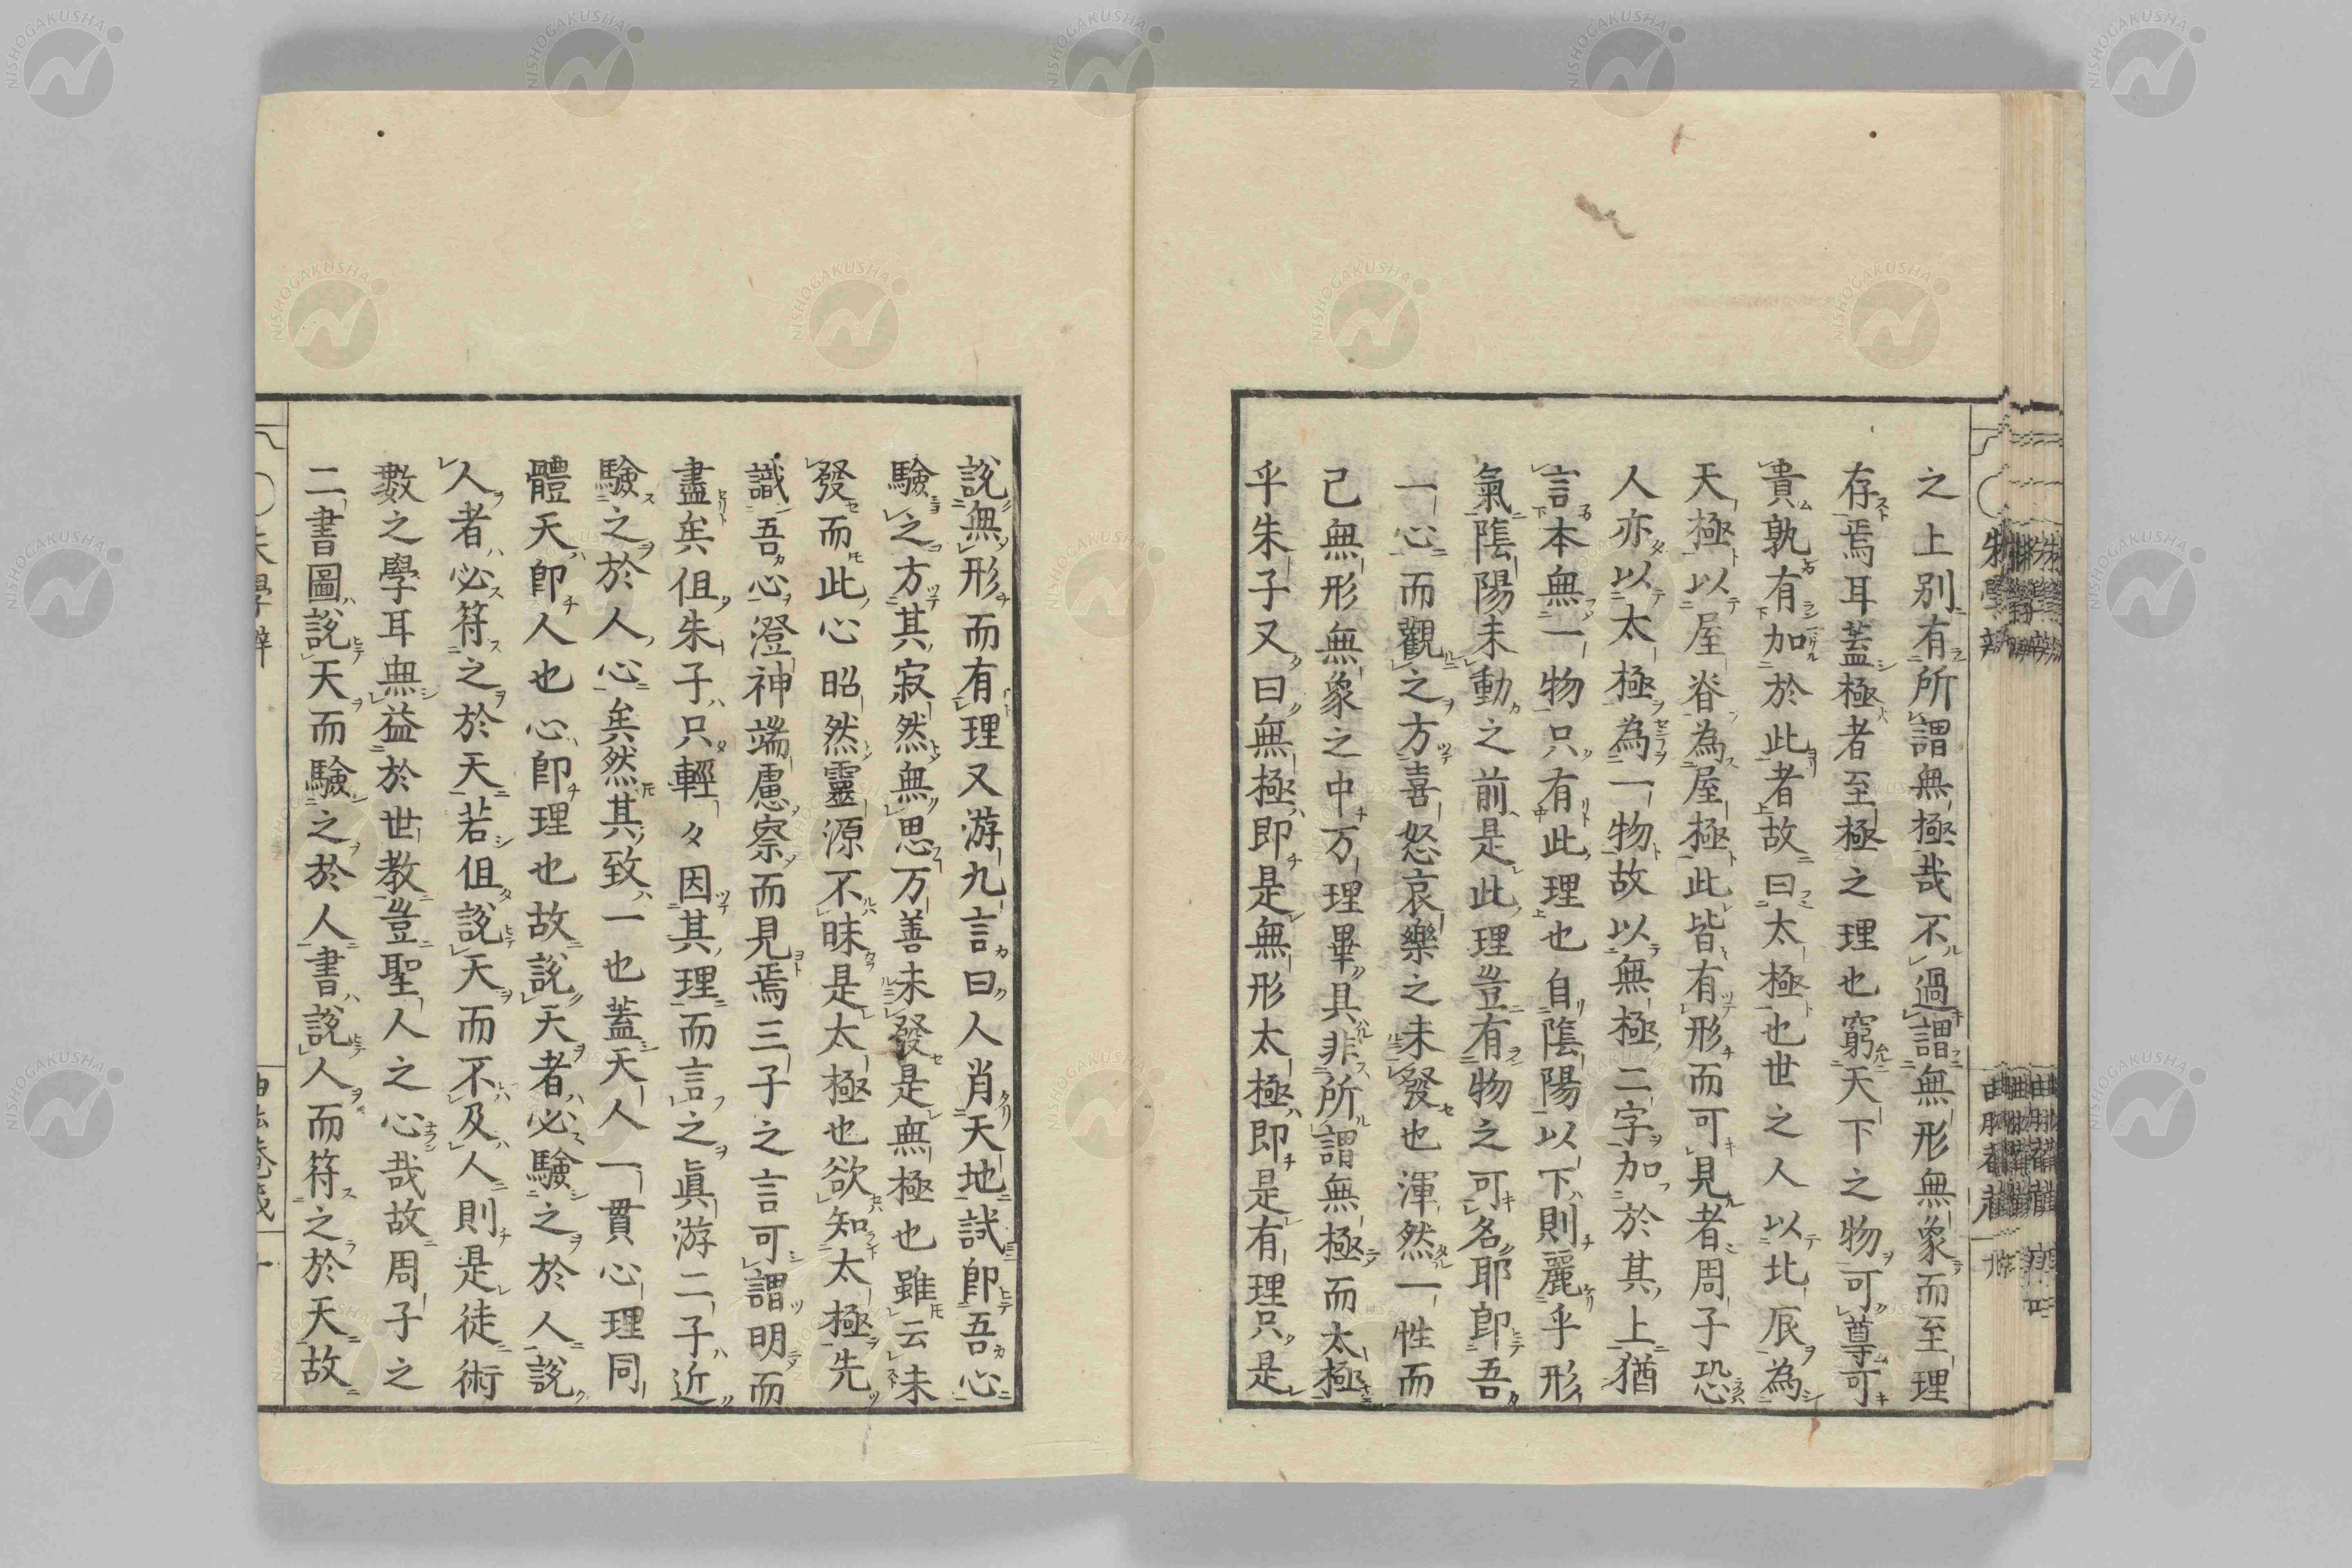 之上別有所謂無極哉不過謂無形無象而至理
存焉耳蓋極者至極之理也窮天下之物可尊可
貴孰有加於此者故曰太極也世之人以北辰為
天極以屋脊為屋極此皆有形而可見者周子恐
人亦以太極為一物故以無極二字加於其上猶
言本無一物只有此理也自陰陽以下則麗乎形
氣陰陽未動之前是此理豈有物之可名耶即吾
一心而觀之方喜怒哀樂之未發也渾然一性而
已無形無象之中万理畢具非所謂無極而太極
乎朱子又曰無極即是無形太極即是有理只是
說無形而有理又游九言曰人肖天地試即吾心
驗之方其寂然無思万善未發是無極也雖云未
發而此心昭然靈源不昧是太極也欲知太極先
識吾心澄神端慮察而見焉三子之言可謂明而
盡矣但朱子只輕々因其理而言之眞游二子近
驗之於人心矣然其致一也蓋天人一貫心理同
體天即人也心即理也故說天者必驗之於人說
人者必符之於天若但說天而不及人則是徒術
數之學耳無益於世教豈聖人之心哉故周子之
二書圖說天而驗之於人書說人而符之於天故